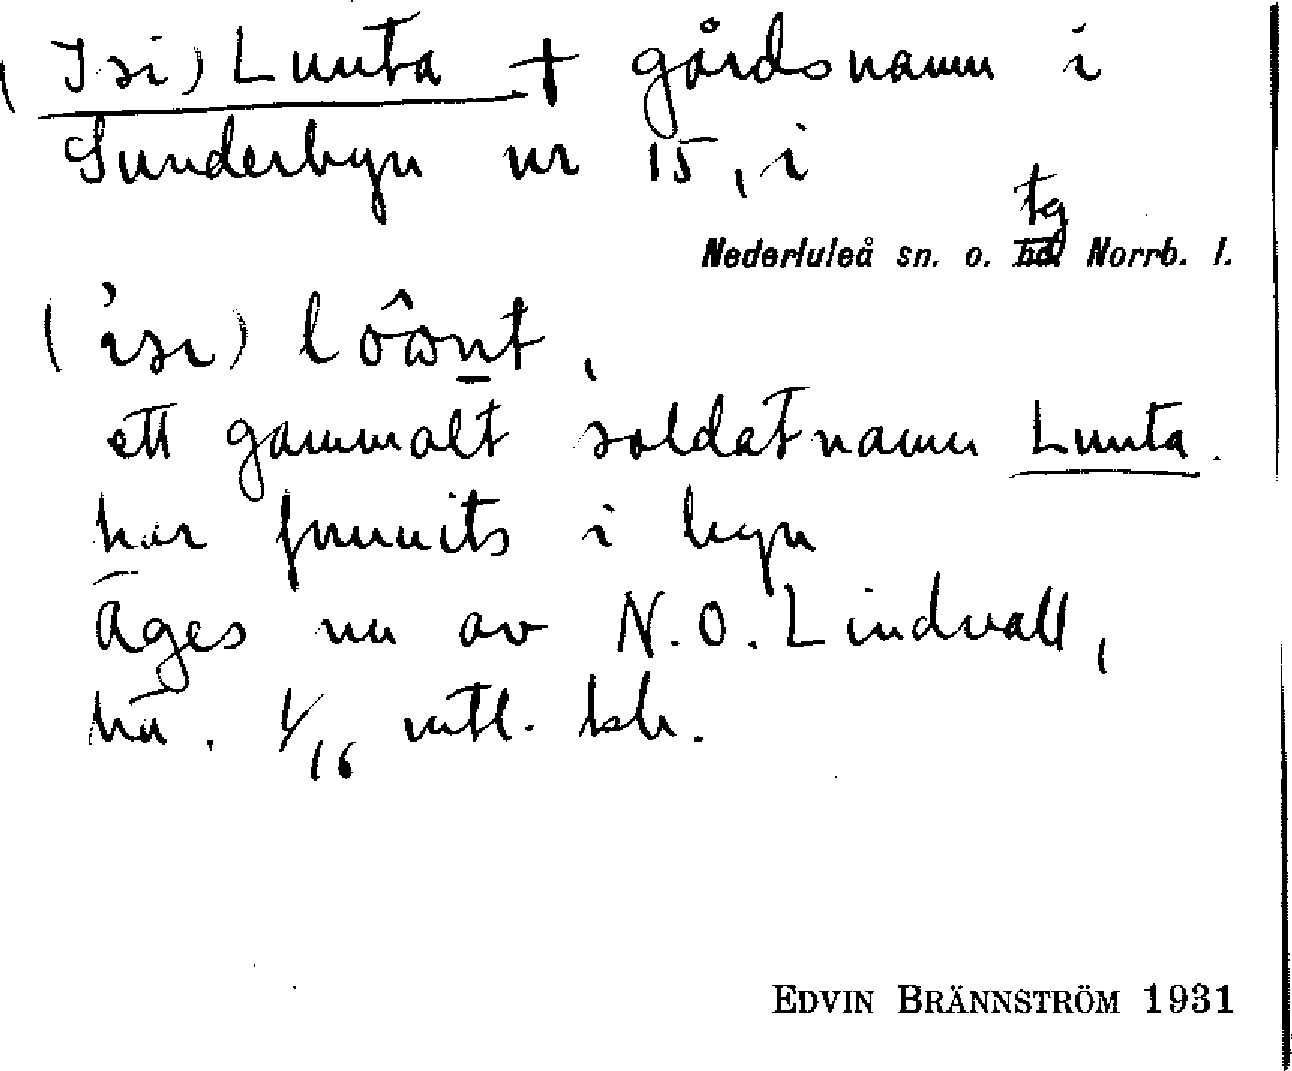 (Isi) Lunta + gårdsnamn i
Sunderbyn nr 15, i
tg
Nederluleå sn. o. hd. Norrb. l.
(ìsı) lôωnt,
ett gammalt soldatnamn Lunta
har funnits i byn
äges nu av N. O. Lindvall,
1/16 mtl.
EDVIN BRÄNNSTRÖM 1931